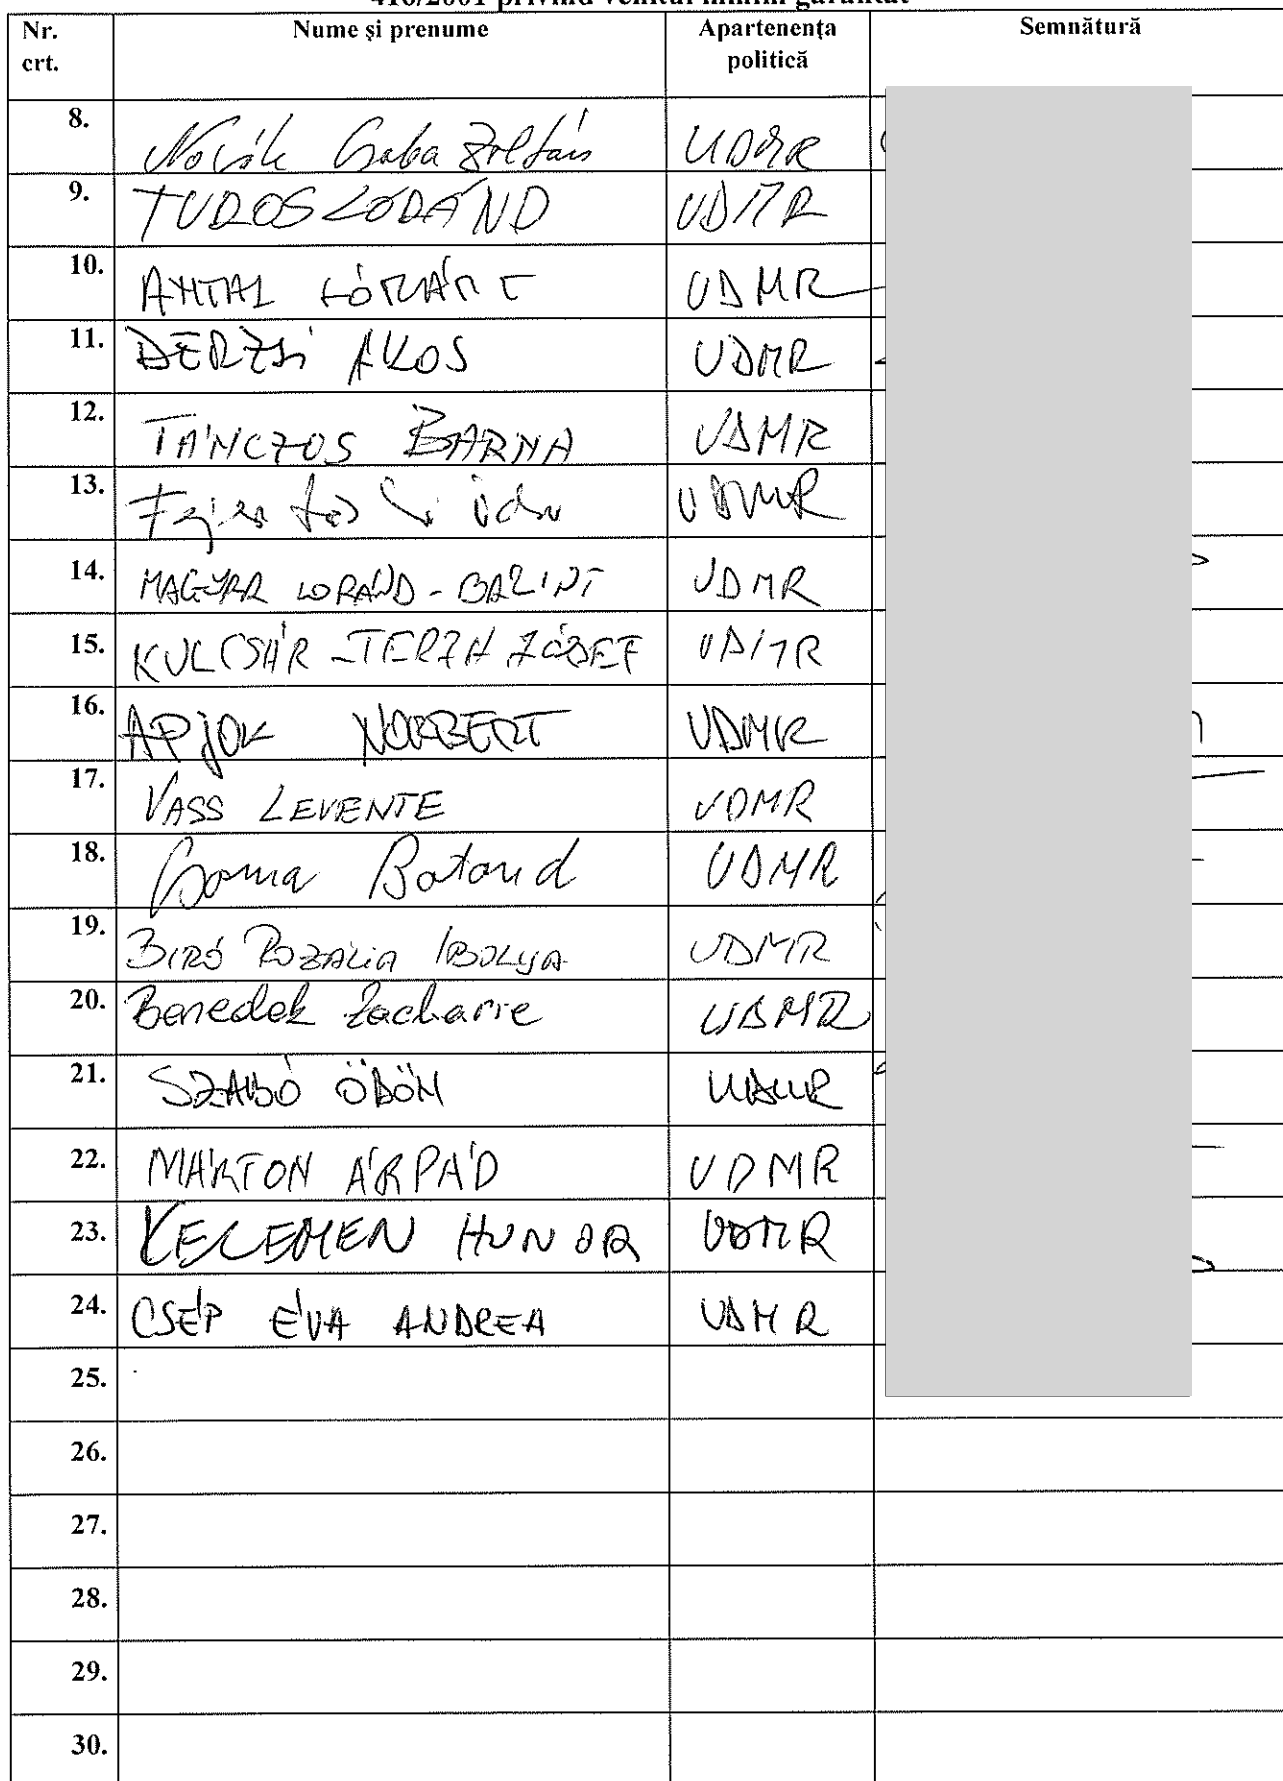 416/2001 privind venitul minim garantat
Nr. crt. Nume și prenume Apartenența politică Semnătură
8. Novák Csaba Zoltán UDMR
9. TUROS LÓRÁND UDMR
10. ANTAL LÓRÁNT UDMR
11. DERZSI AKOS UDMR
12. TÁNCZOS BARNA UDMR
13. UDMR
14. MAGYAR LORAND-BALINT UDMR
15. KULCSÁR-TERZA JÓZSEF UDMR
16. APJOK NORBERT UDMR
17. VASS LEVENTE UDMR
18. Csoma Botond UDMR
19. BIRÓ ROZALIA IBOLYA UDMR
20. Benedek Zacharie UDMR
21. SZABÓ ÖDÖN UDMR
22. MÁRTON ÁRPÁD UDMR
23. KELEMEN HUNOR UDMR
24. CSÉP ÉVA ANDREA UDMR
25.
26.
27.
28.
29.
30.